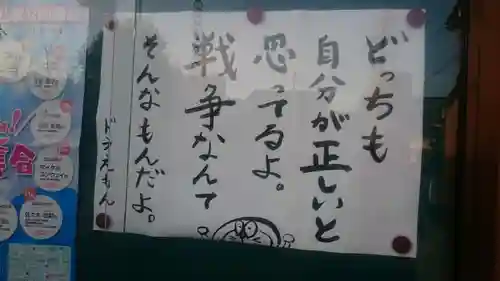 どっちも
自分が正しいと
思ってるよ。
戦争なんて
そんなもんだよ。
ドラえもん